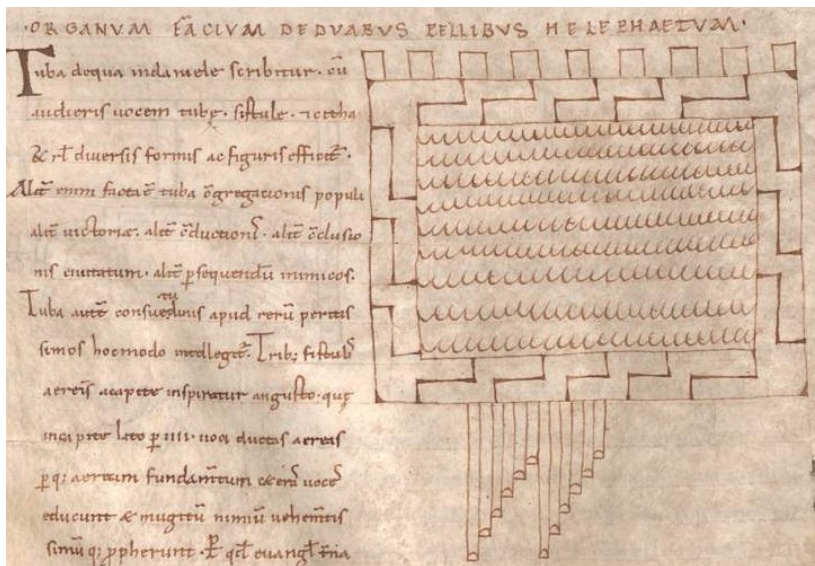 ·ORGANVM FACIVM DE DVABVS PELLIBVS HELEPHAETVM·
Tuba de qua in daniele scribitur. cū
audieris uocem tubę. fistule.
& rł diversis formis ac figuris efficit̄.
Alit̄ enim facta ē tuba c̄gregacionis populi
alit̄ uictoriæ. alit̄ alit̄ c̄clusio
nis ciuitatum. alit̄ p̄sequendū inimicos.
Tuba autē consuetudinis apud rerū peritis
simos hoc modo intellegit̄. Tribꝫ fistulis
aereis a capite inspiratur angusto. quę
in capite lato p̄ iiii. uoci ductas aereas
ꝑ qꝫ aereum fundam̄tum uocēs
educunt & mugitū nimiū uehem̄tis
simū qꝫ ꝓpherunt. qđ euangł